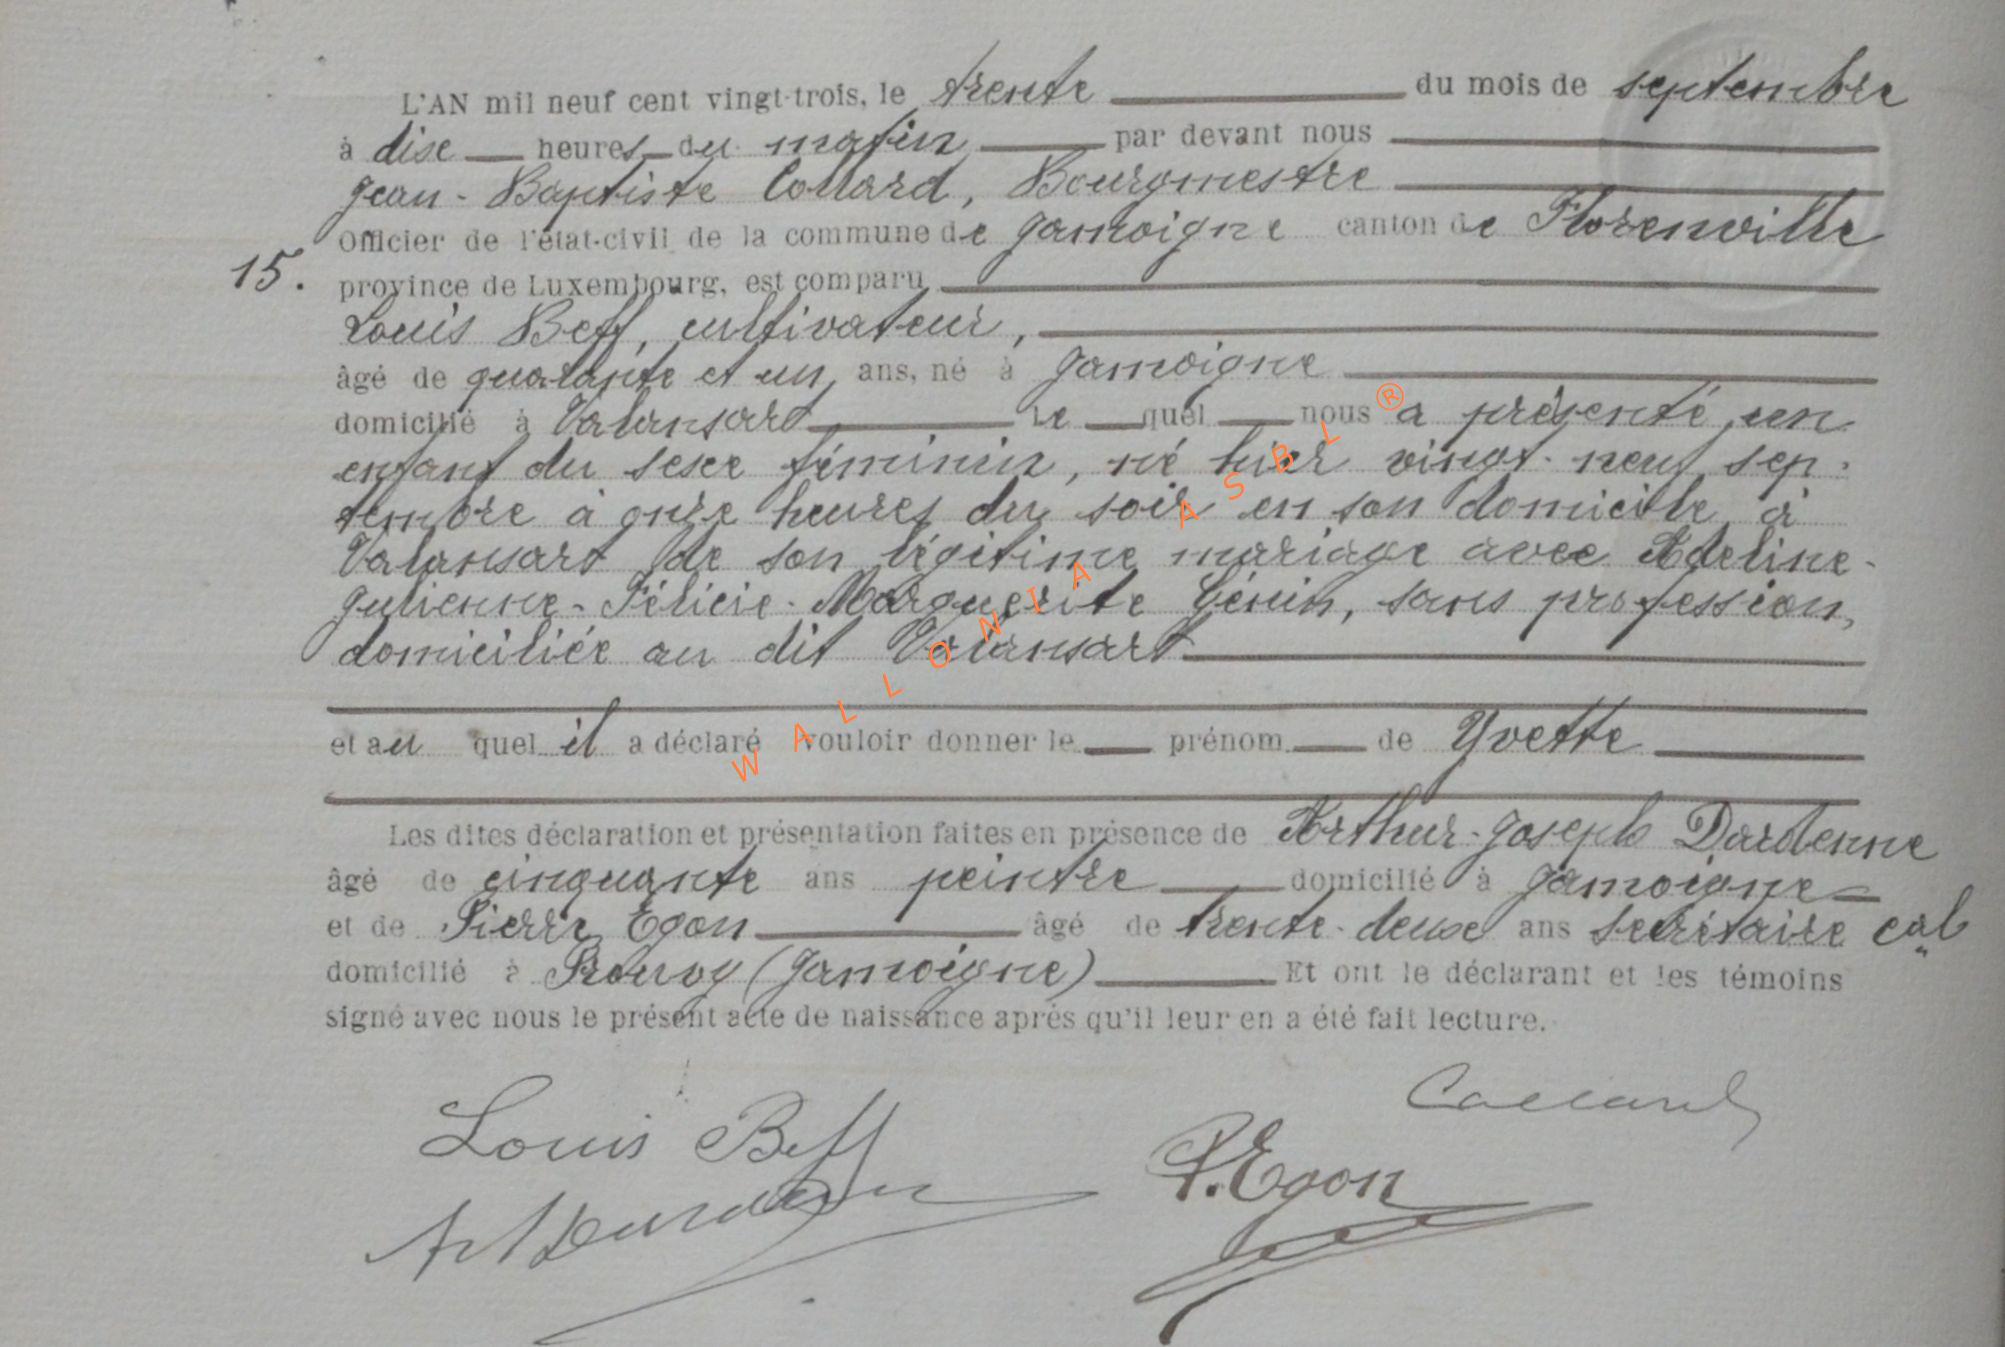 L'AN mil neuf cent vingt-trois, le trente du mois de septembre
à dix heures du matin par devant nous
Jean-Baptiste Collard, Bourgmestre
Officier de l'état-civil de la commune de Jamoigne canton de Florenville
15. province de Luxembourg, est comparu
Louis Beff, cultivateur,
âgé de quarante et un ans, né à Jamoigne
domicilié à Valansart le quel nous a présenté un
enfant du sexe féminin, né hier vingt-neuf sep-
tembre à onze heures du soir en son domicile à
Valansart de son légitime mariage avec Adeline-
Julienne-Félicie-Marguerite Génin, sans profession,
domiciliée au dit Valansart
et au quel il a déclaré vouloir donner le prénom de Yvette
Les dites déclaration et présentation faites en présence de Arthur-Joseph Dardenne
âgé de cinquante ans peintre domicilié à Jamoigne
et de Pierre Egon âgé de trente-deux ans secrétaire cal
domicilié à Prouvy (Jamoigne) Et ont le déclarant et les témoins
signé avec nous le présent acte de naissance après qu'il leur en a été fait lecture.
Collard
Louis Beff
P. Egon
Art Dardenne
WALLONIA ASBL ®